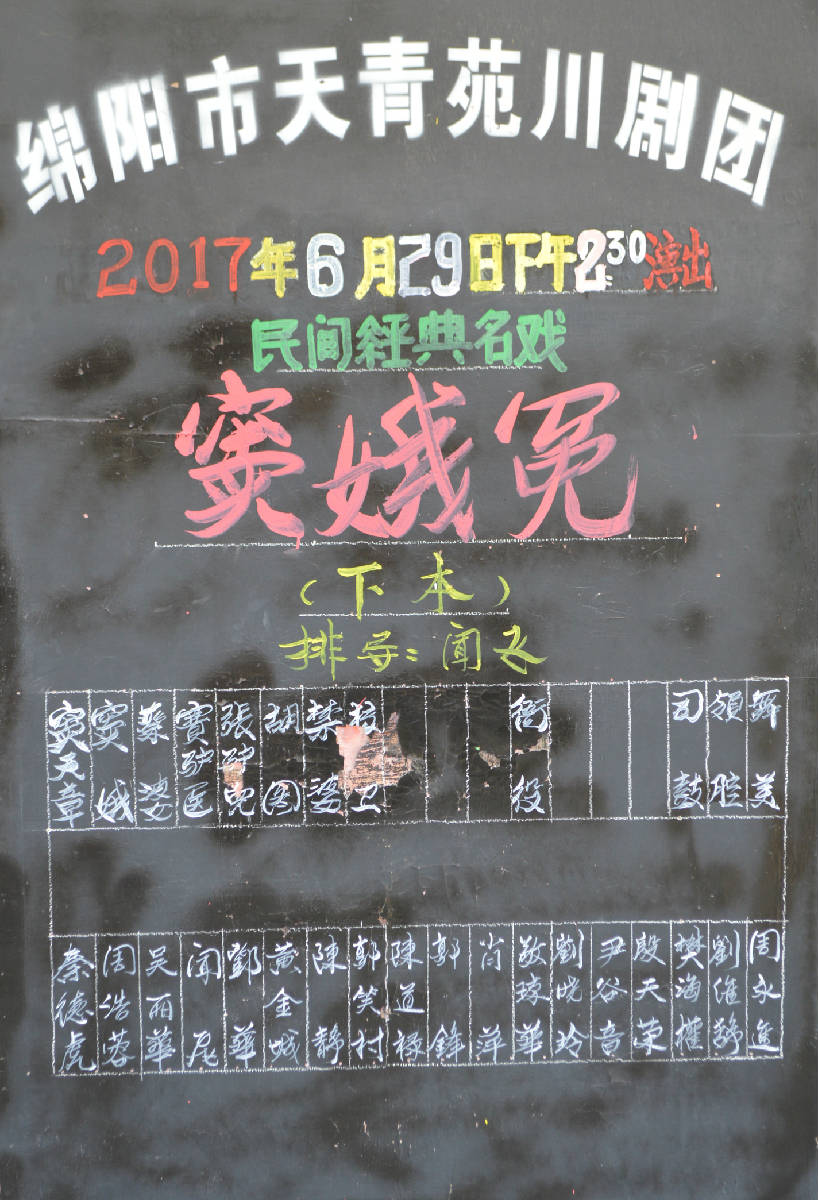 绵阳市天青苑川剧团
2017年6月29日下午2:30演出
民间經典名戏
窦娥冤
(下本)
排导:闻飞
窦天章
窦娥
蔡婆
賽驴医
張驴兒
胡图
禁婆
校卫
衙役
司鼓
領腔
舞美
秦德虎
周浩蓉
吴丽華
闻飛
鄧華
黄金娥
陳静
郭笑村
陳道禄
郭鋒
肖萍
敬琼華
劉晓玲
尹谷音
殷天荣
樊海權
劉维静
周永進